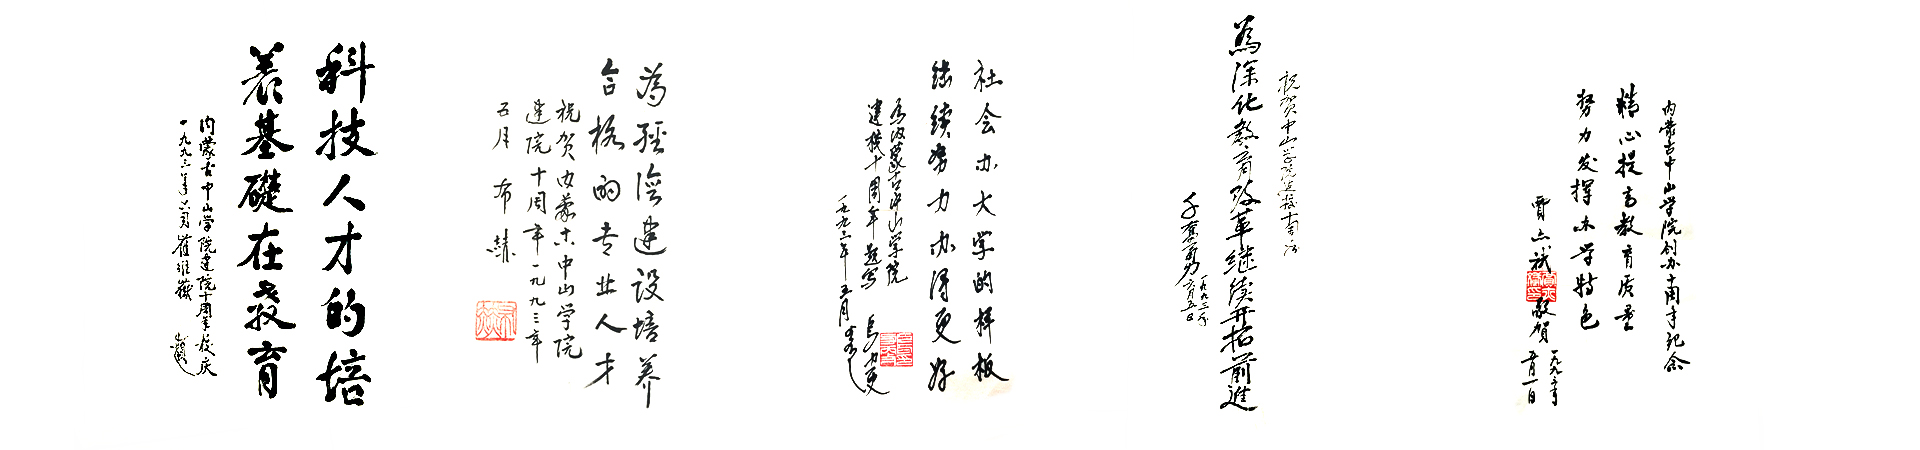 科技人才的培
养基礎在教育
内蒙古中山学院建院十周年校庆
一九九三年六月 崔维嶽 题
为经济建设培养
合格的专业人才
祝贺内蒙古中山学院
建院十周年一九九三年
五月 布赫
社会办大学的样板
继续努力办得更好
为内蒙古中山学院
建校十周年题写
一九九三年五月
祝贺中山学院建校十周年
為深化教育改革继续开拓前進
千奋勇
一九九三年六月五日
内蒙古中山学院创办十周年纪念
精心提高教育质量
努力发挥办学特色
敬贺
一九九三年